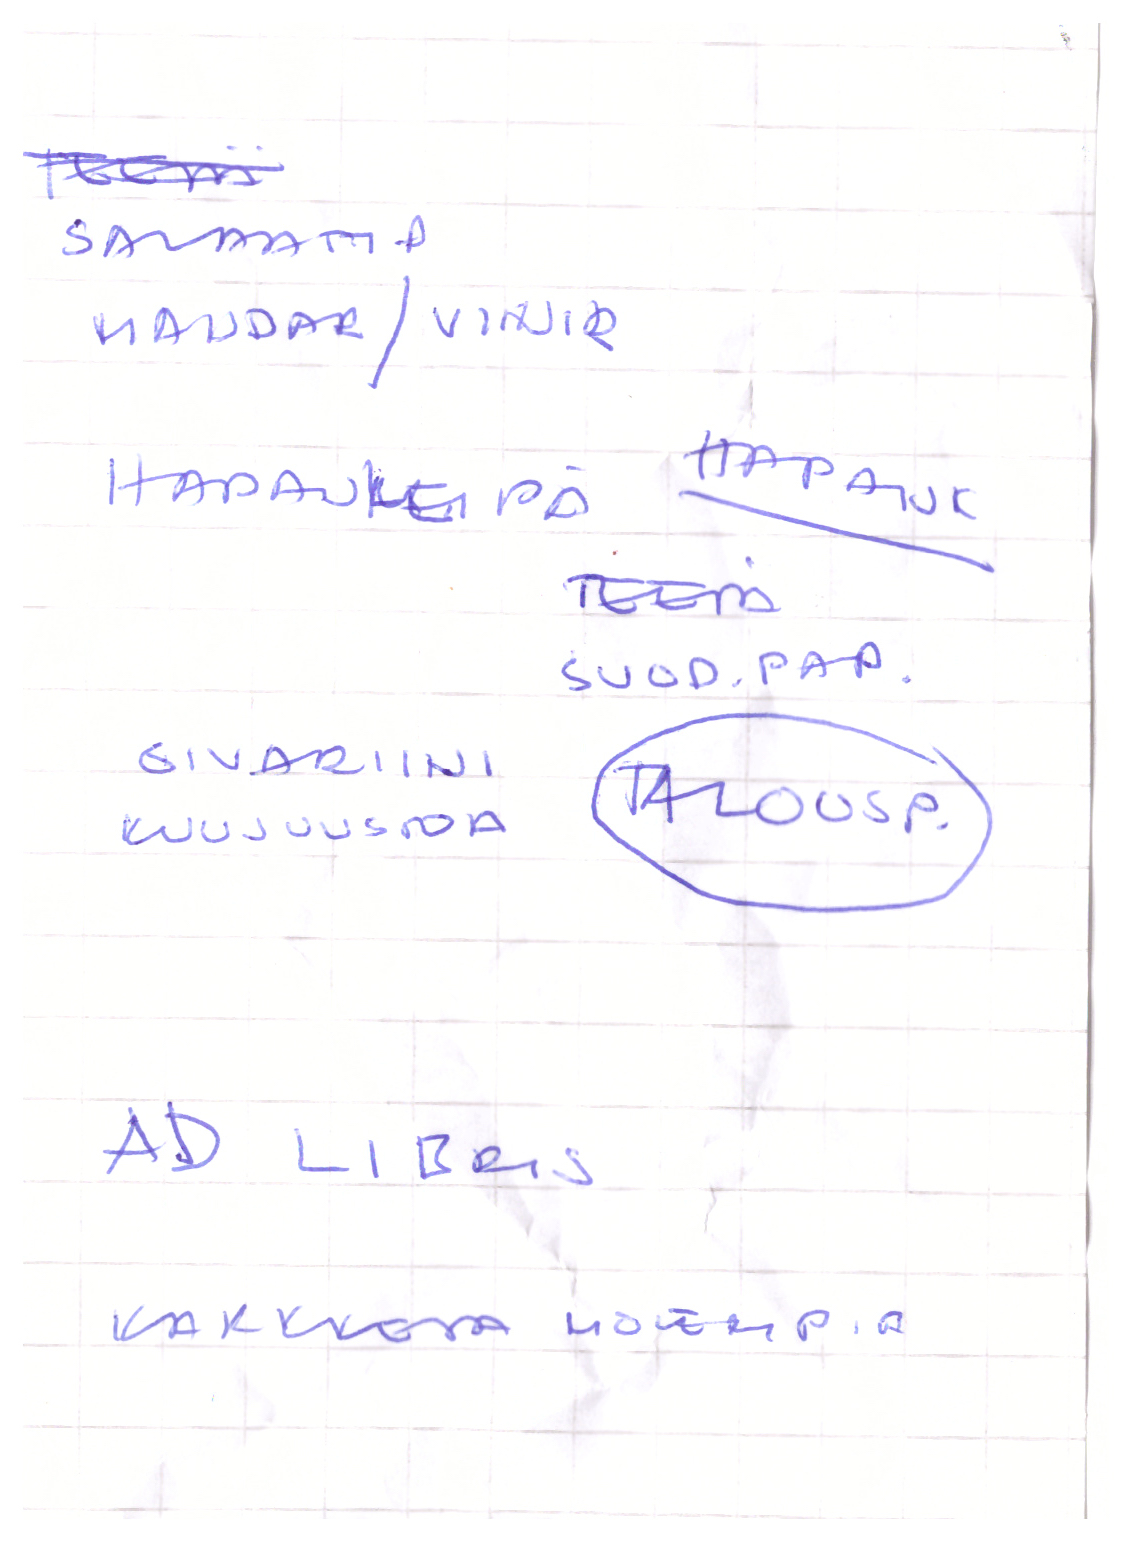 TEETÄ
SALAATTIA
MANDAR/VIINIR
HAPANLEIPÄ HAPANK
TEETÄ
SUOD.PAP.
SIVARIINI
TALOUSP.
KUUJUUSTOA
AD LIBRIS
KARKKEJA MOLEMPIA